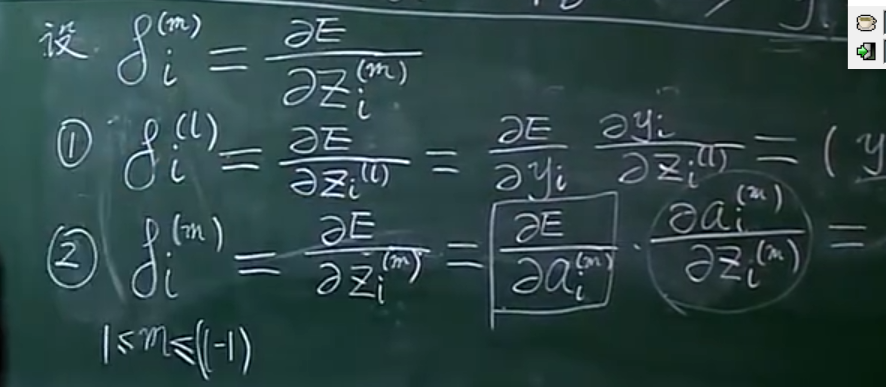 设 δᵢ⁽ᵐ⁾ = ∂E / ∂zᵢ⁽ᵐ⁾
① δᵢ⁽ˡ⁾ = ∂E / ∂zᵢ⁽ˡ⁾ = ∂E / ∂yᵢ ∂yᵢ / ∂zᵢ⁽ˡ⁾ = ( y
② δᵢ⁽ᵐ⁾ = ∂E / ∂zᵢ⁽ᵐ⁾ = ∂E / ∂aᵢ⁽ᵐ⁾ · ∂aᵢ⁽ᵐ⁾ / ∂zᵢ⁽ᵐ⁾ =
1 ≤ m ≤ (l-1)